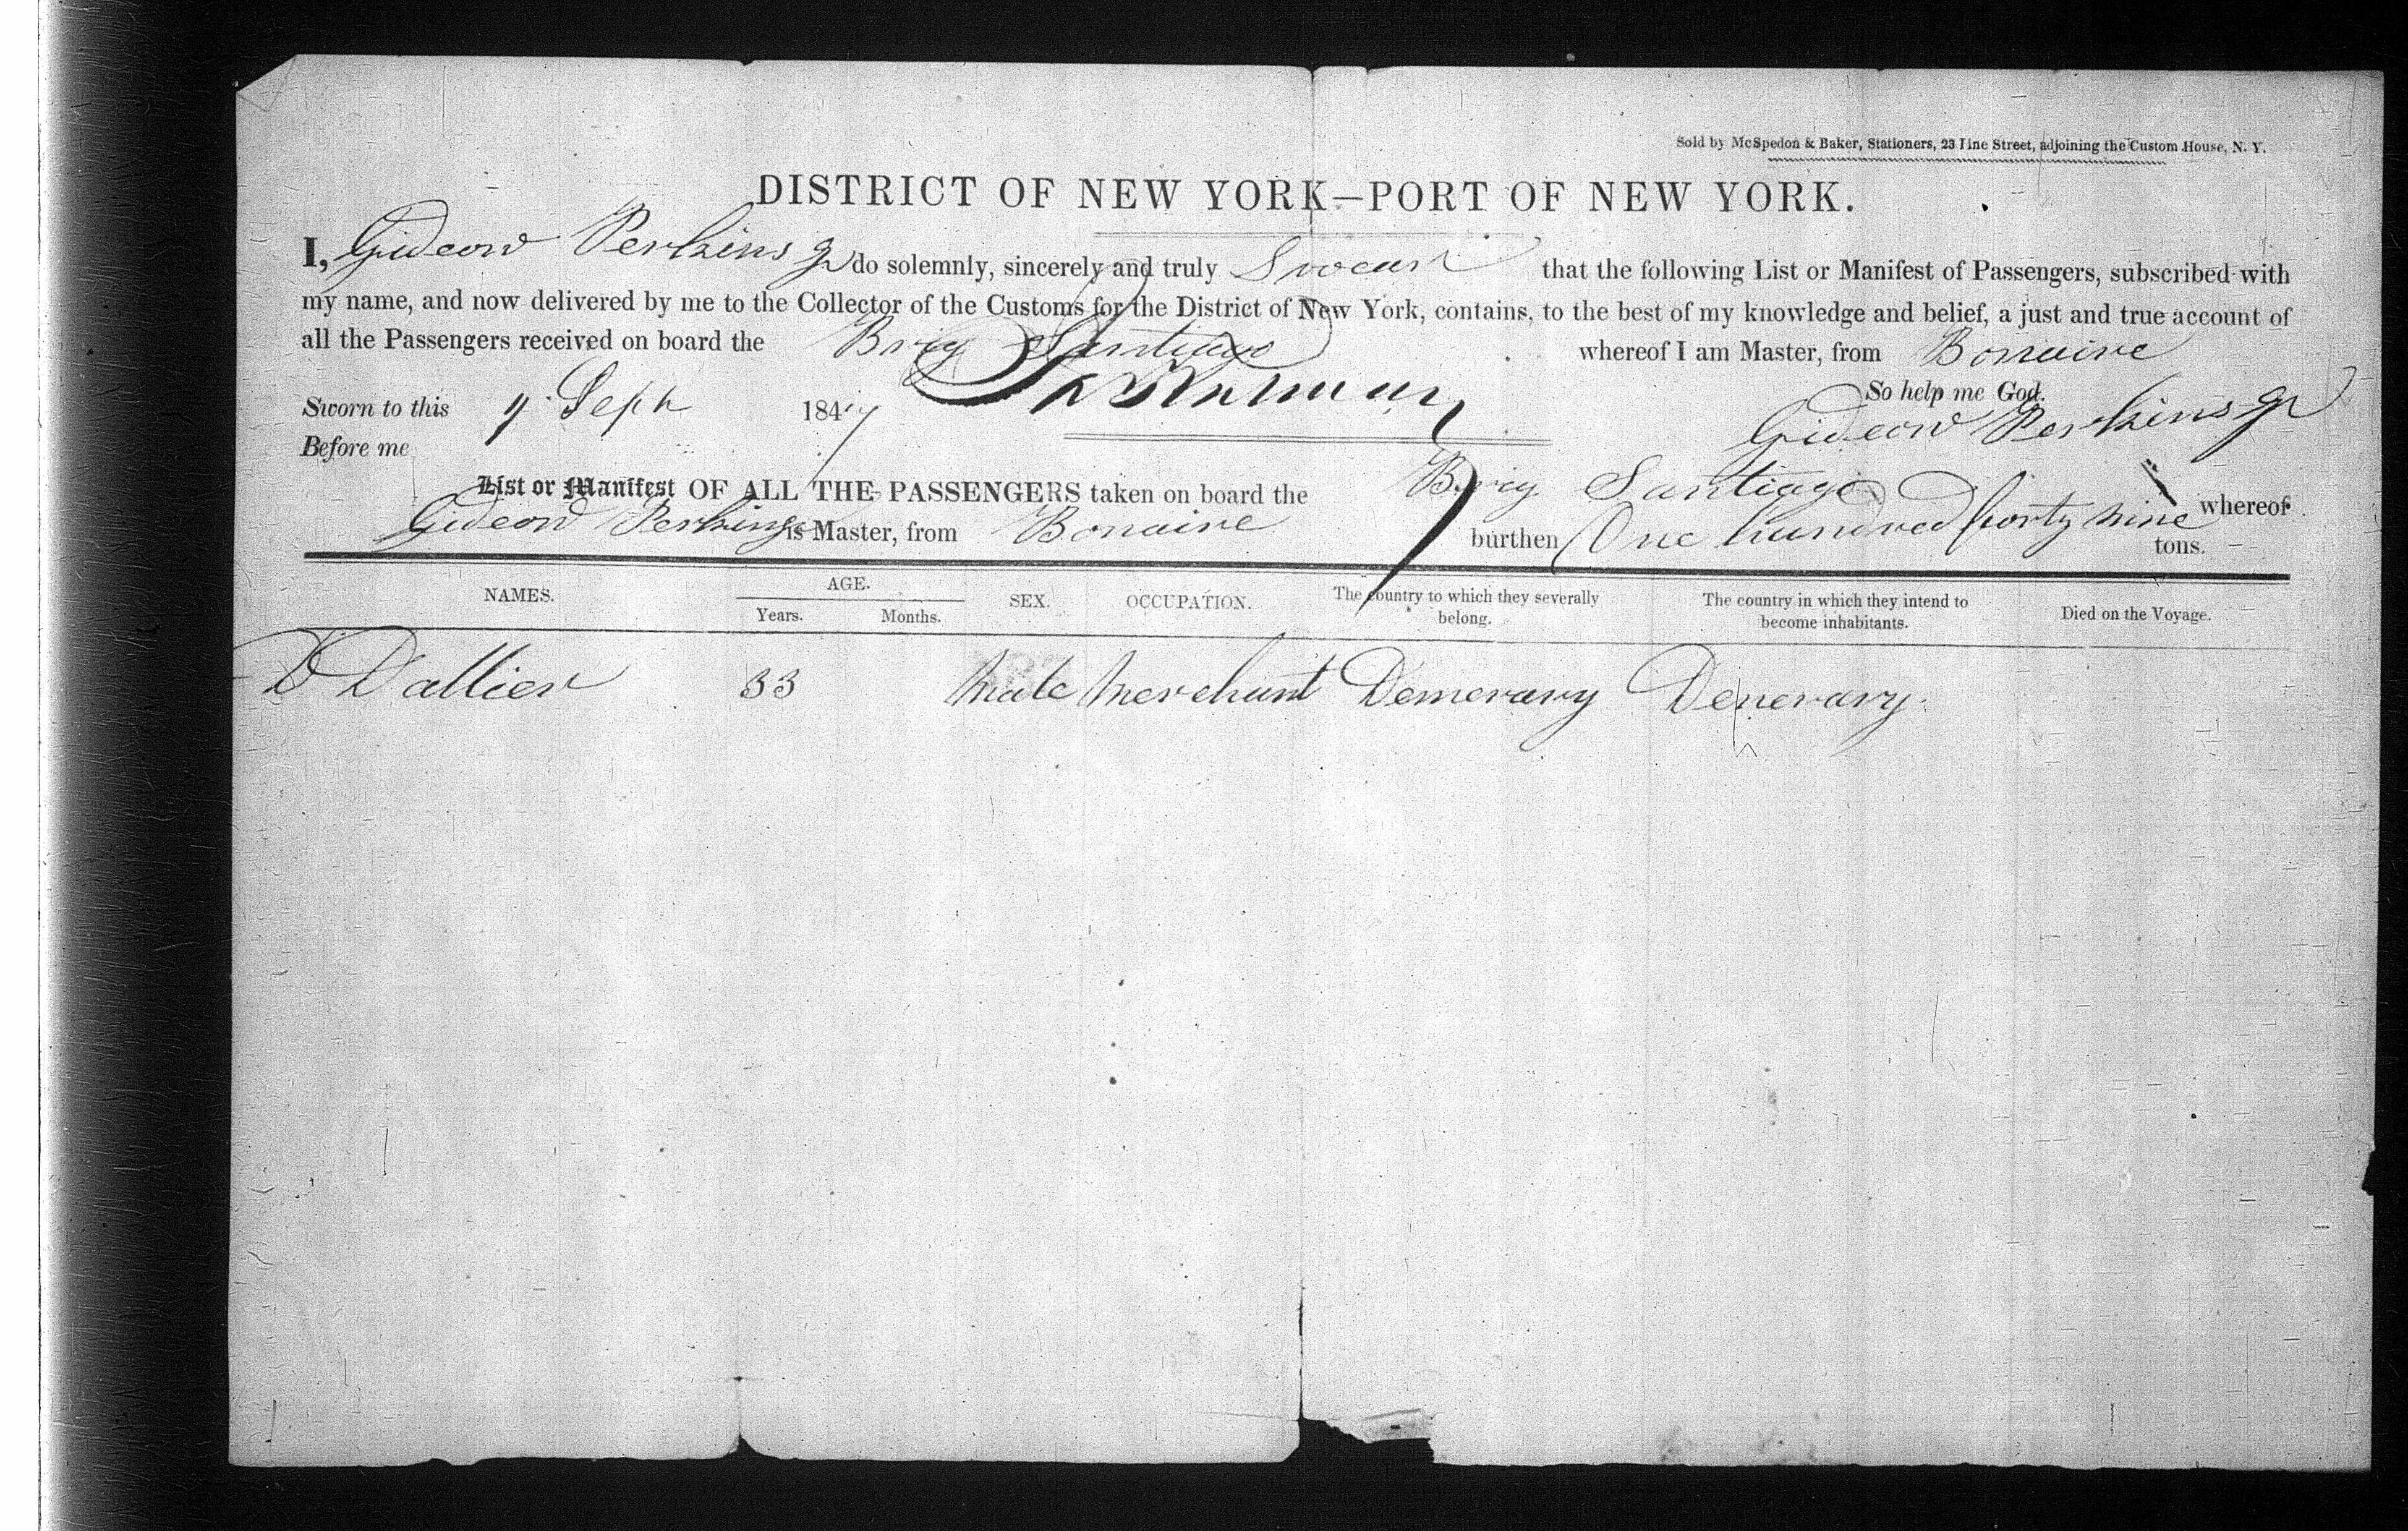 Sold by McSpedon & Baker, Stationers, 23 Pine Street, adjoining the Custom House, N. Y.
DISTRICT OF NEW YORK—PORT OF NEW YORK.
I, Gideon Perkins Jr do solemnly, sincerely and truly Swear that the following List or Manifest of Passengers, subscribed with
my name, and now delivered by me to the Collector of the Customs for the District of New York, contains, to the best of my knowledge and belief, a just and true account of
all the Passengers received on board the Brig Santiago whereof I am Master, from Bonaire
So help me God.
Sworn to this Sept 1847 Gideon Perkins Jr
Before me
List or Manifest OF ALL THE PASSENGERS taken on board the Brig Santiago whereof
Gideon Perkins Jr is Master, from Bonaire burthen One hundred forty nine tons.
NAMES. AGE. SEX. OCCUPATION. The country to which they severally belong. The country in which they intend to become inhabitants. Died on the Voyage.
Years. Months.
D Dallier 33 Male Merchant Demerary Demerary